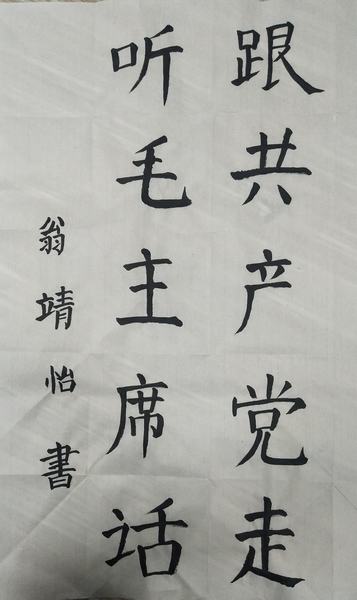 跟共产党走
听毛主席话
翁靖怡書